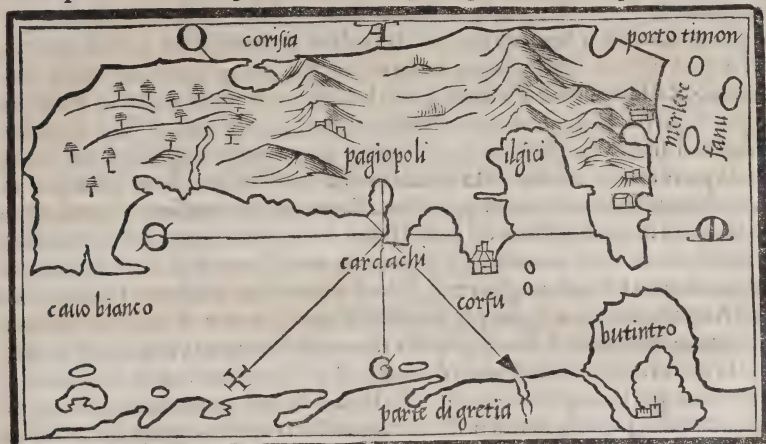 O
corisia
A
porto timon
merlere
fanu
pagiopoli
ilgici
S
M
cardachi
cauo bianco
corfu
butintro
G
parte di gretia